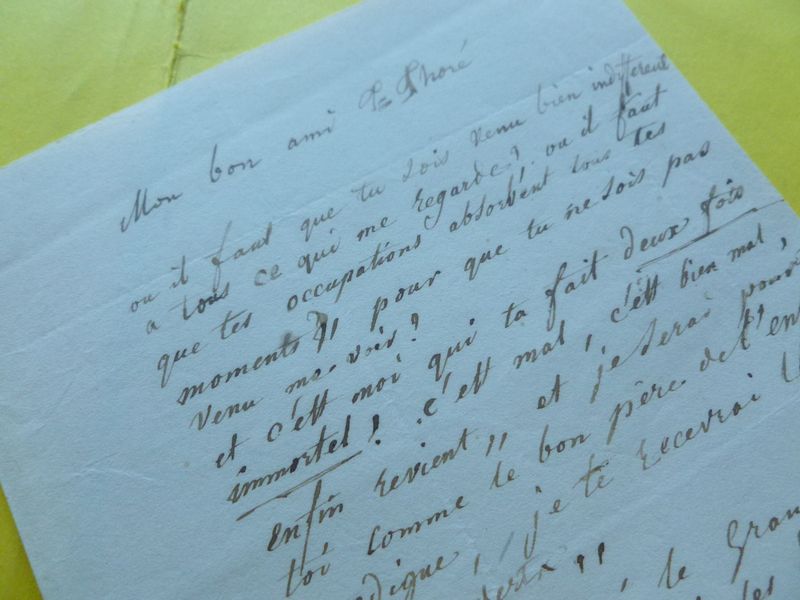 Mon bon ami T. Thoré
ou il faut que tu sois venu bien indifferent
a tous ce qui me regarde? ou il faut
que tes occupations absorbent tous tes
moments?,, pour que tu ne sois pas
venu me voir?
et c'est moi qui ta fait deux fois
immortel! c'est mal, c'est bien mal,
enfin revient,, et je serai pour
toi comme le bon père de l'en
digue, je te recevrai
le gran